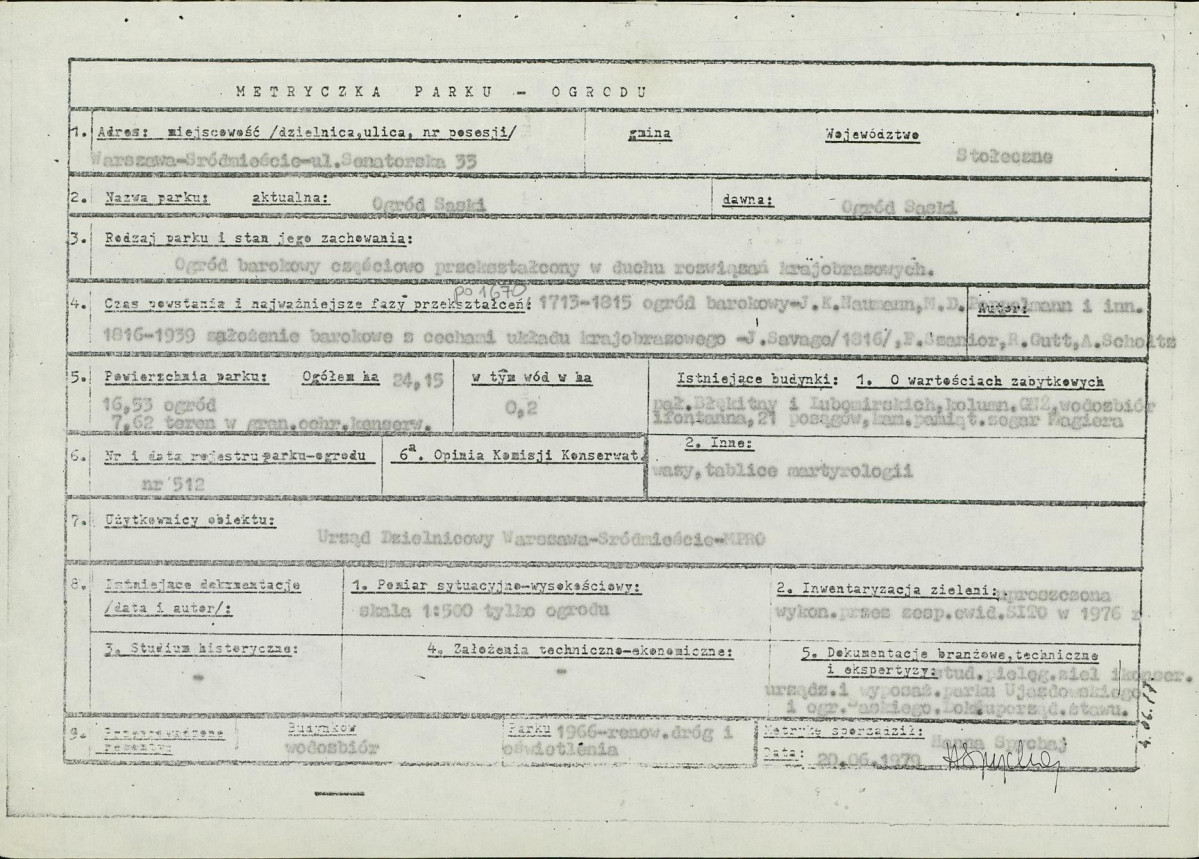 METRYCZKA PARKU - OGRODU
1. Adres: miejscowość /dzielnica,ulica, nr posesji/ gmina Województwo
Warszawa-Sródmieście-ul.Senatorska 33 Stołeczne
2. Nazwa parku: aktualna: Ogród Saski dawna: Ogród Saski
3. Rodzaj parku i stan jego zachowania:
Ogród barokowy częściowo przekształcony w duchu rozwiązań krajobrazowych.
po 1670
4. Czas powstania i najważniejsze fazy przekształceń: 1713-1815 ogród barokowy-J.K.Naumann,M.D. i inn. Autor:
1816-1939 założenie barokowe z cechami układu krajobrazowego -J.Savage/1816/,F.Szanior,R.Gutt,A.Scholtz
5. Powierzchnia parku: Ogółem ha 24,15 w tym wód w ha Istniejące budynki: 1. O wartościach zabytkowych
16,53 ogród 0,2 pał.Błękitny i Lubomirskich,kolumn.GNŻ,wodozbiór
7,62 teren w gran.ochr.konserw. ifontanna,21 posągów,kam.pamiąt.zegar Magiera
6. Nr i data rejestru parku-ogrodu 6a. Opinia Komisji Konserwat. 2. Inne:
nr 512 wazy,tablice martyrologii
7. Użytkownicy obiektu:
Urząd Dzielnicowy Warszawa-Sródmieście-MPRO
8. Istniejące dokumentacje 1. Pomiar sytuacyjno-wysokościowy: 2. Inwentaryzacja zieleni: uproszczona
/data i autor/: skala 1:500 tylko ogrodu wykon.przez zesp.ewid.SITO w 1976 r
3. Studium historyczne: 4. Założenia techniczno-ekonomiczne: 5. Dokumentacje branżowe,techniczne
- - i ekspertyzy: stud.pielęg.ziel ikonser.
urządz.i wyposaż.parku Ujazdowskiego
i ogr.Saskiego.
9. Przeprowadzone Budynków Parku 1966-renow.dróg i Metrykę sporządził: Hanna Spychaj
remonty: wodozbiór oświetlenia Data: 20.06.1979